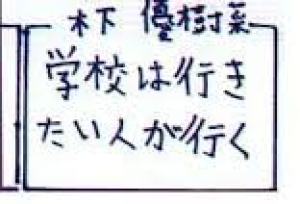 木下 優樹菜
学校は行き
たい人が行く